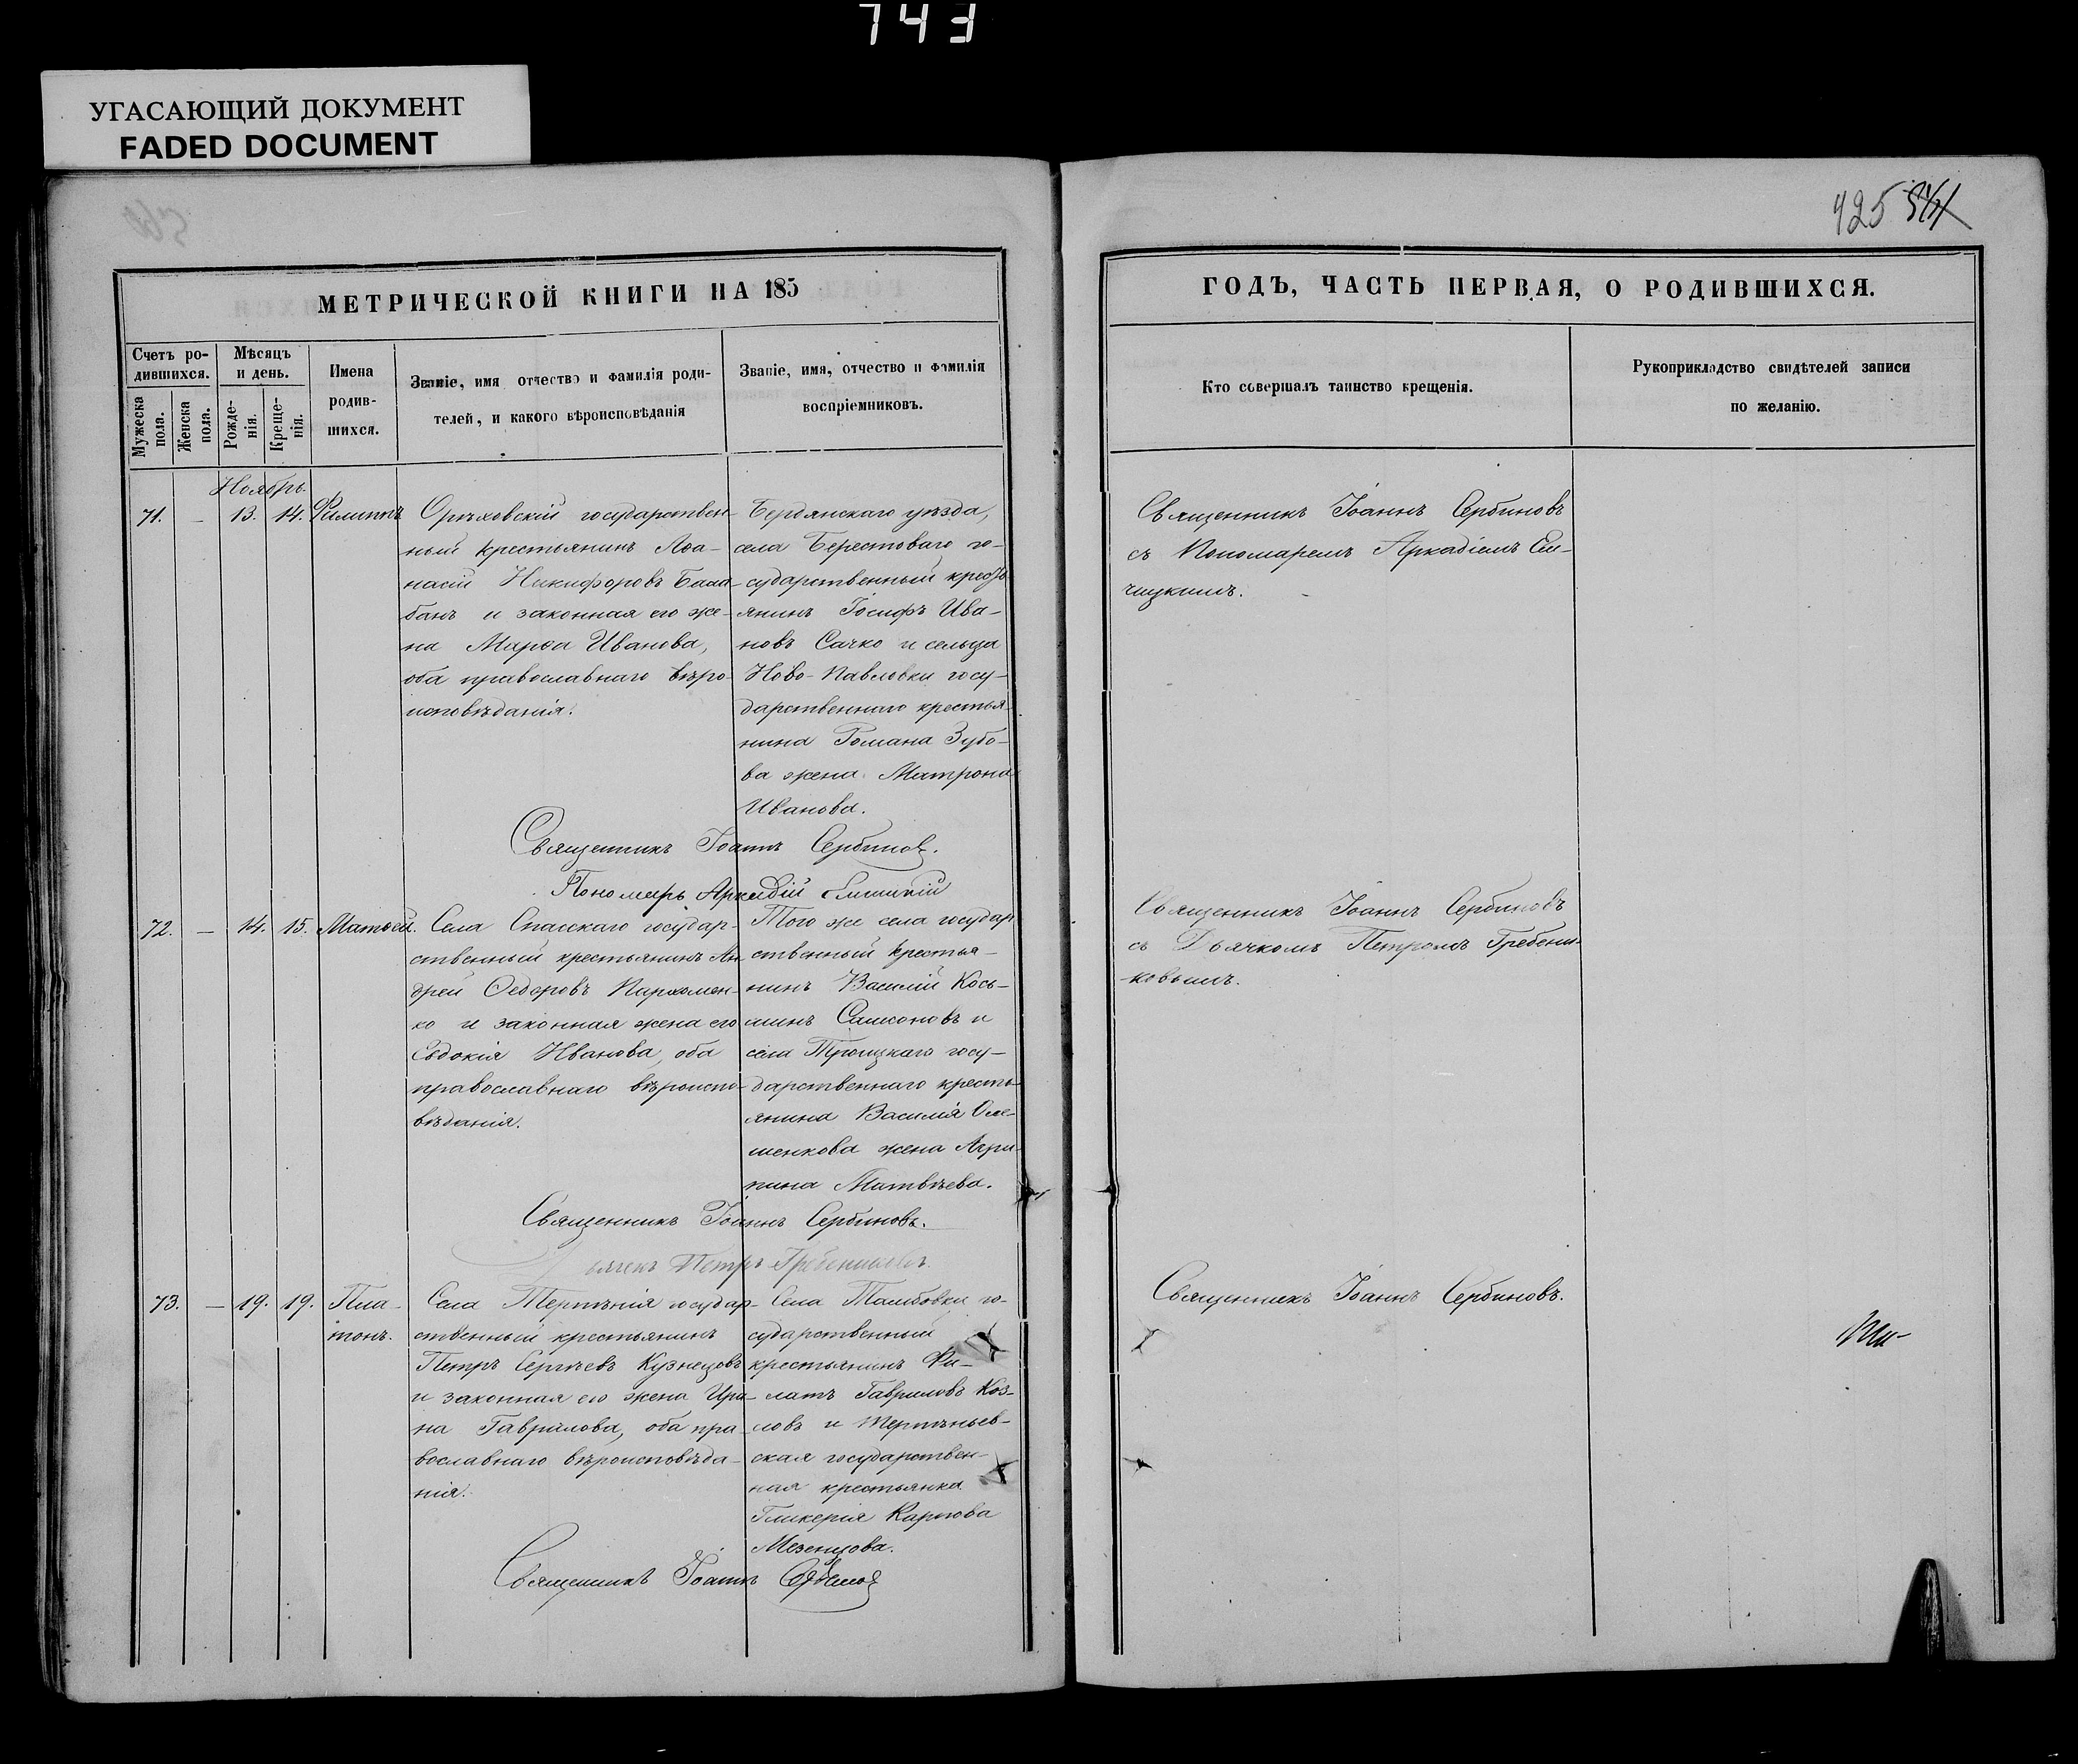 743
УГАСАЮЩИЙ ДОКУМЕНТ
FADED DOCUMENT
425
МЕТРИЧЕСКОЙ КНИГИ НА 185
Счетъ ро-
дившихся.
Мужеска
пола.
Женска
пола.
Мѣсяцъ
и день.
Рожде-
нія.
Креще-
нія.
Имена
родив-
шихся.
Званіе, имя отчество и фамилія роди-
телей, и какого вѣроисповѣданія
Званіе, имя, отчество и фамилія
воспріемниковъ.
Ноябрь.
71. — 13. 14. Филиппъ
Орѣховскій государствен-
ный крестьянинъ Аѳа-
насій Никифоровъ Бала-
банъ и законная его же-
на Марѳа Иванова,
оба православнаго вѣро-
исповѣданія.
Бердянскаго уѣзда,
села Берестоваго го-
сударственный кресть-
янинъ Іосифъ Ива-
новъ Сачко и сельца
Ново-Павловки госу-
дарственнаго крестья-
нина Романа Зубо-
ва жена Матрона
Иванова.
Священникъ Іоаннъ Сербиновъ.
Пономарь Аркадій
72. — 14. 15. Матѳей.
Села Спасскаго государ-
ственный крестьянинъ Ан-
дрей Ѳедоровъ Пархомен-
ко и законная жена его
Евдокія Иванова, оба
православнаго вѣроиспо-
вѣданія.
Того же села государ-
ственный крестья-
нинъ Василій Кось-
минъ Самсоновъ и
села Троицкаго госу-
дарственнаго кресть-
янина Василія Оле-
шенкова жена Агри-
пина Матвѣева.
Священникъ Іоаннъ Сербиновъ.
Дьячекъ Петръ Гребениковъ.
73. — 19. 19. Пла-
тонъ.
Села Терпѣнія государ-
ственный крестьянинъ
Петръ Сергѣевъ Кузнецовъ
и законная его жена Ири-
на Гаврилова, оба пра-
вославнаго вѣроисповѣда-
нія.
Села Тамбовки го-
сударственный
крестьянинъ Фи-
латъ Гавриловъ Коз-
ловъ и Терпѣньев-
ская государствен-
ная крестьянка
Гликерія Карпова
Мезенцова.
Священникъ Іоаннъ Сербиновъ
ГОДЪ, ЧАСТЬ ПЕРВАЯ, О РОДИВШИХСЯ.
Кто совершалъ таинство крещенія.
Рукоприкладство свидѣтелей записи
по желанію.
Священникъ Іоаннъ Сербиновъ
съ Пономаремъ Аркадіемъ
Священникъ Іоаннъ Сербиновъ
съ Дьячкомъ Петромъ Гребени-
ковымъ.
Священникъ Іоаннъ Сербиновъ.